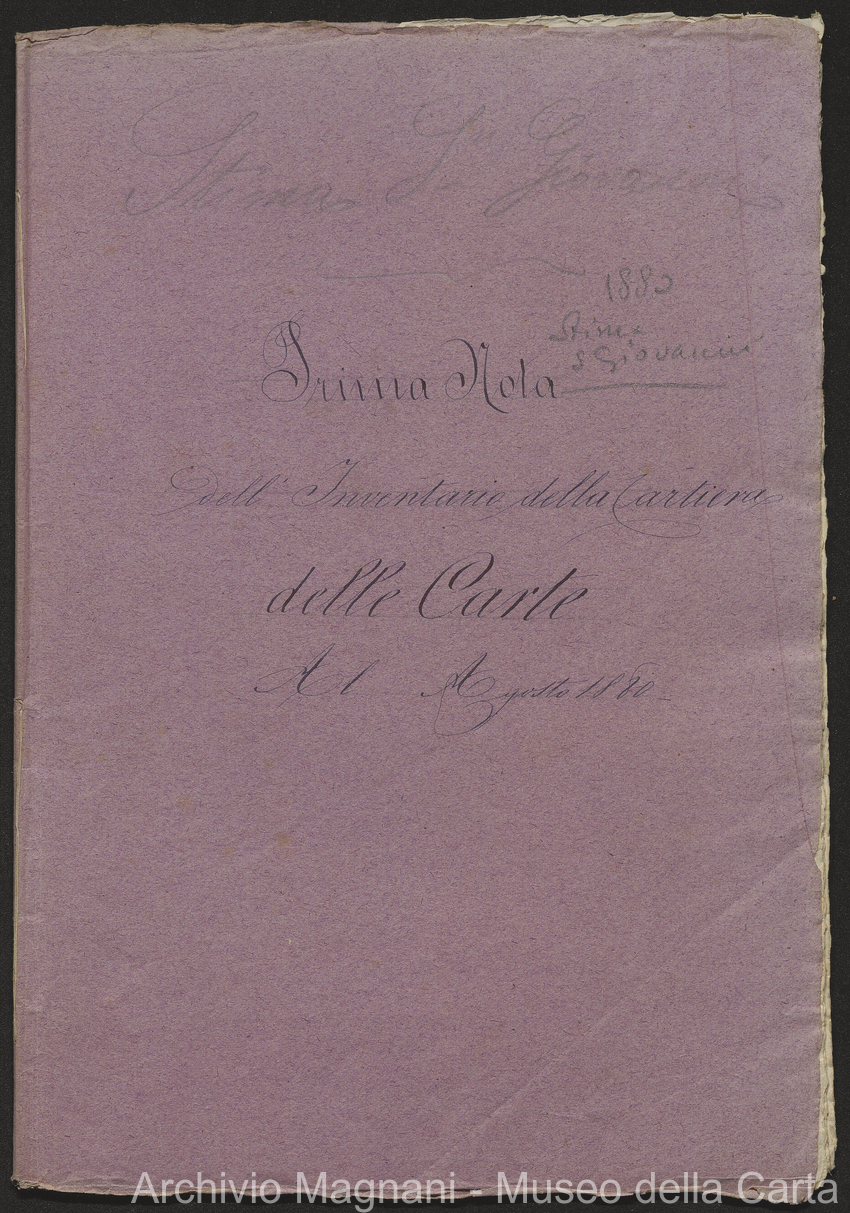 Stima Sn Giovanni
1880
Stima
S Giovanni
Prima Nota
dell' Inventario della Cartiera
delle Carte
Al Agosto 1880
Archivio Magnani - Museo della Carta